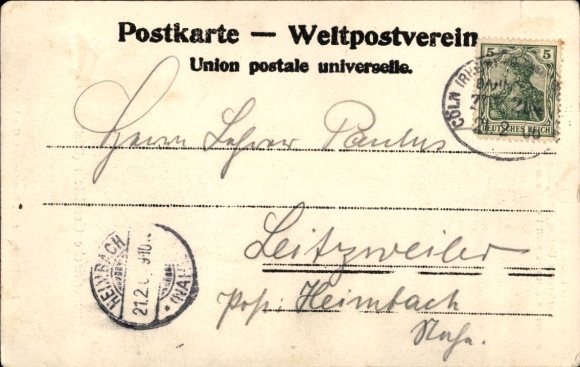 Postkarte — Weltpostverein
Union postale universelle.
5 5
DEUTSCHES REICH
CÖLN
Herrn Lehrer Paulus
Leitzweiler
Post Heimbach
Nahe.
HEIMBACH
21.2.0
9-10
(NAHE